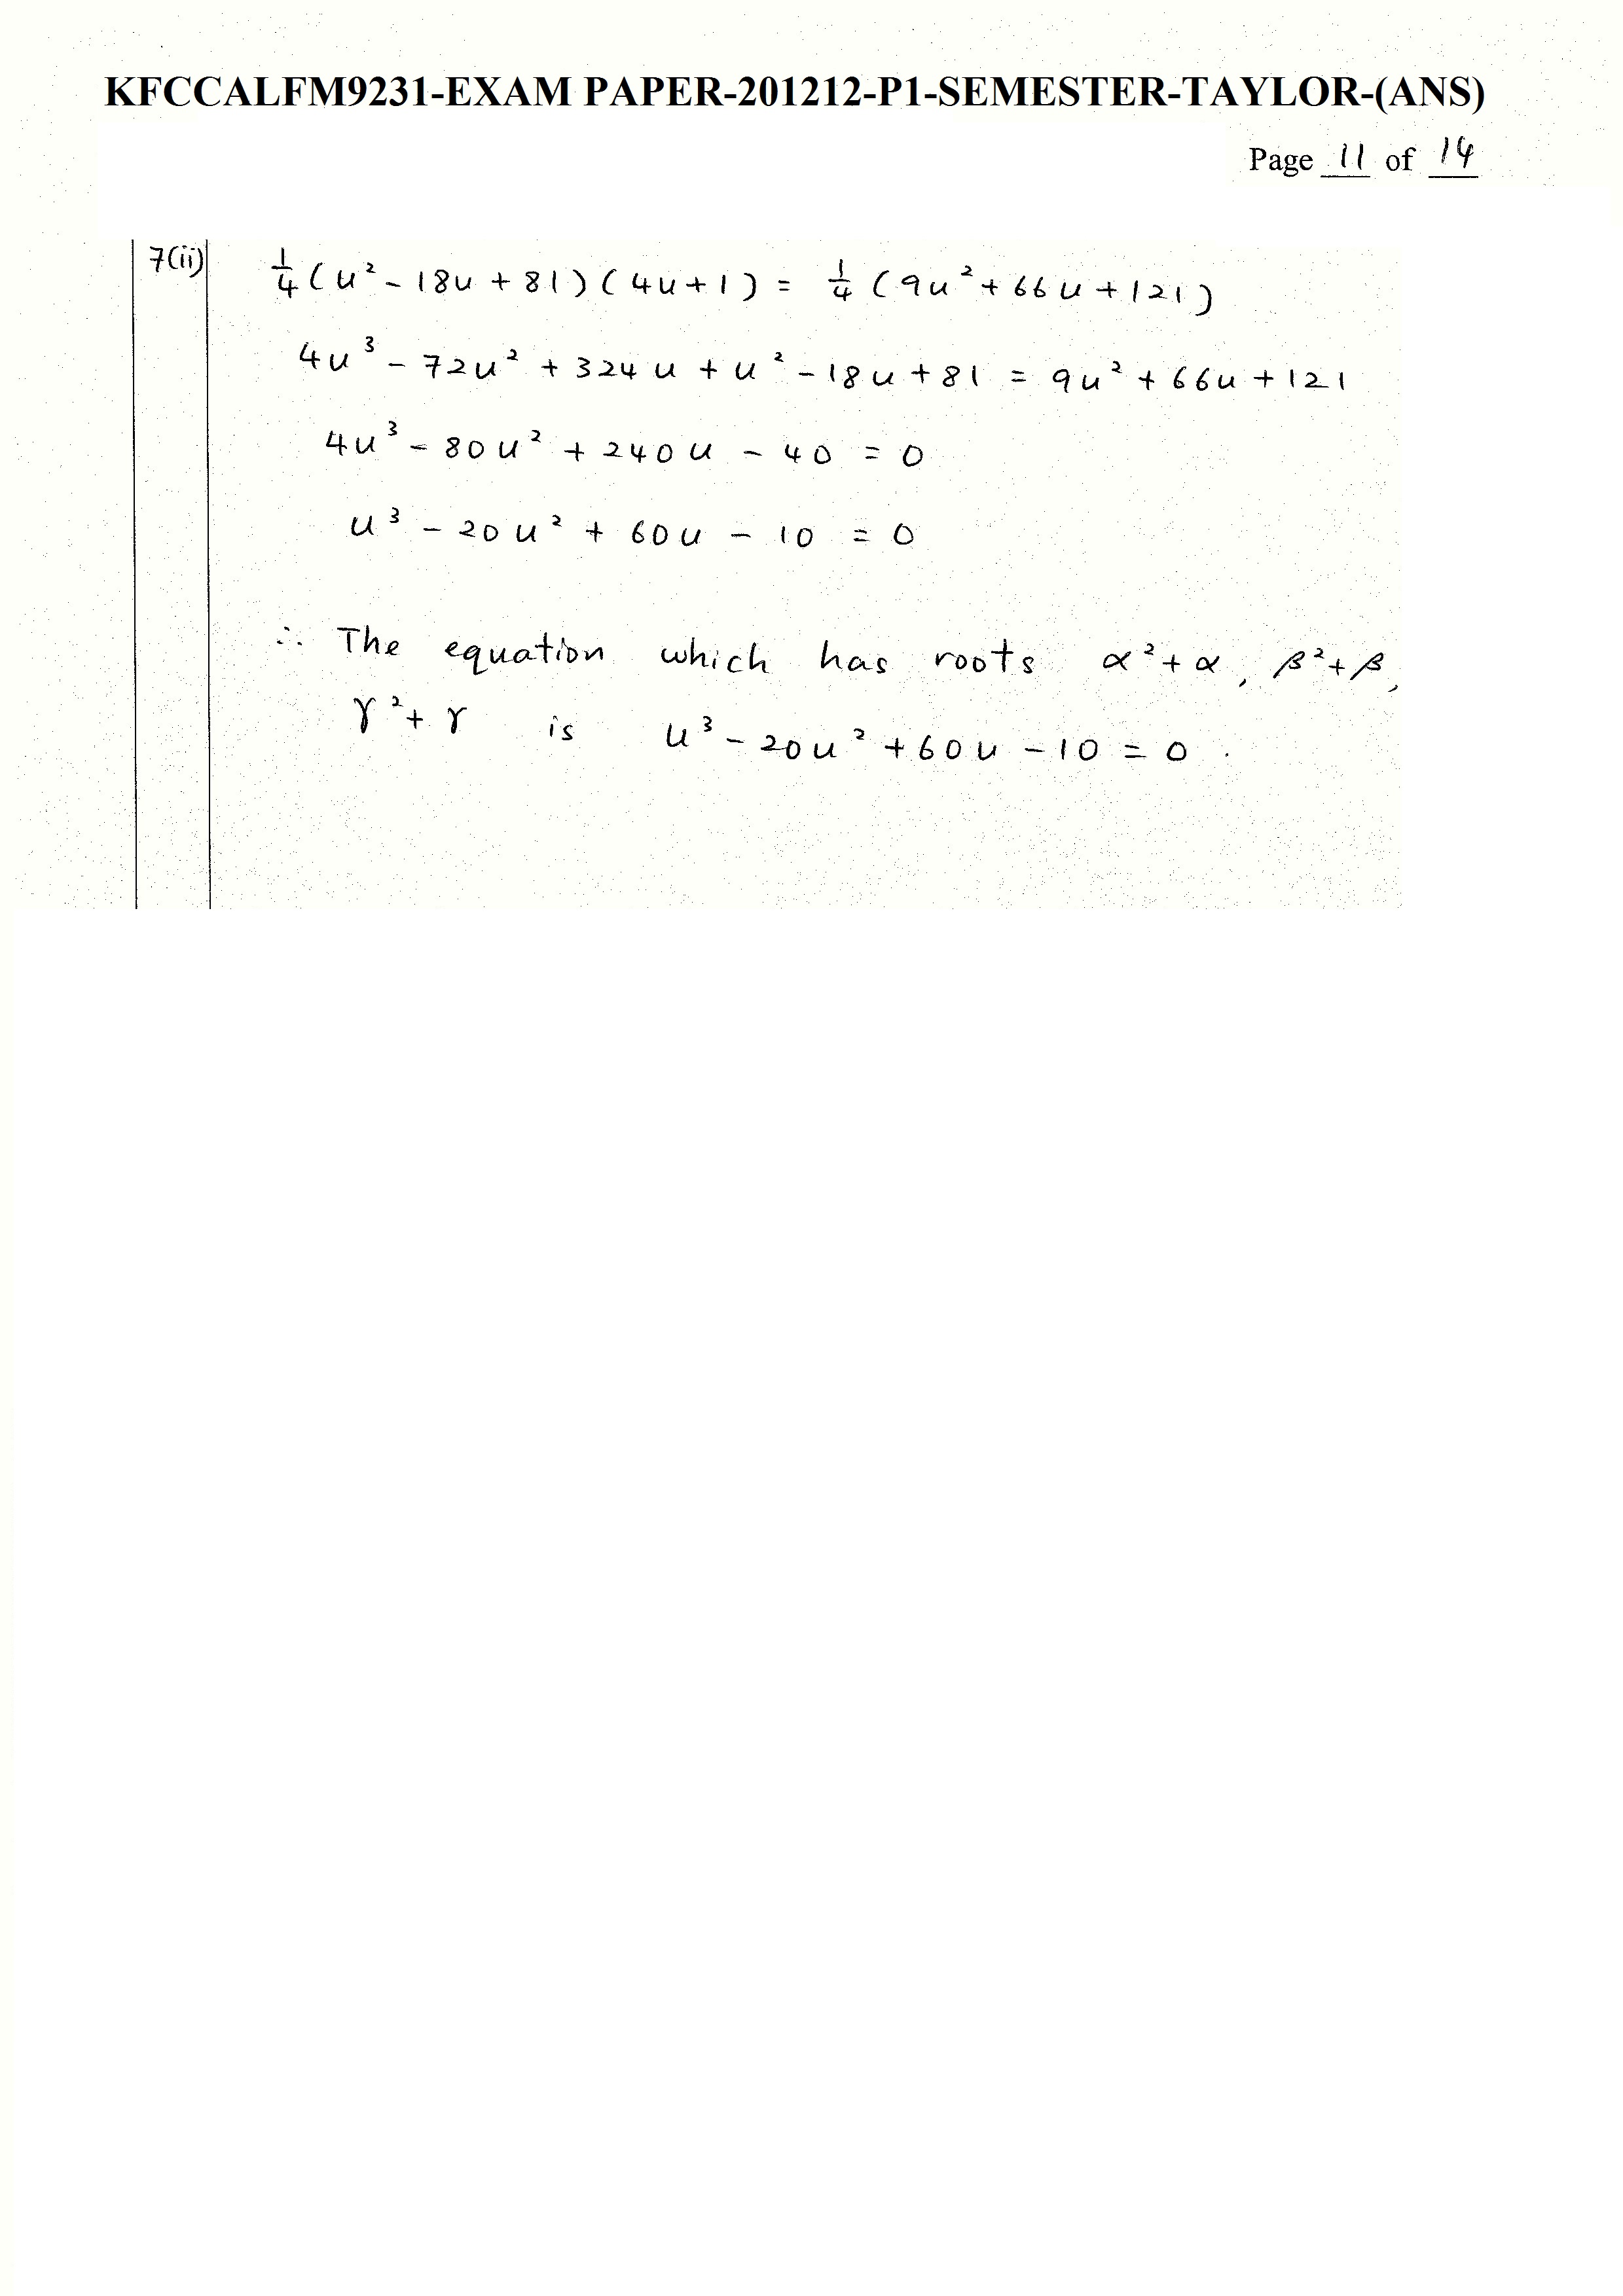 KFCCALFM9231-EXAM PAPER-201212-P1-SEMESTER-TAYLOR-(ANS)
Page 11 of 14
7(ii) ¼(u² - 18u + 81)(4u + 1) = ¼(9u² + 66u + 121)
4u³ - 72u² + 324u + u² - 18u + 81 = 9u² + 66u + 121
4u³ - 80u² + 240u - 40 = 0
u³ - 20u² + 60u - 10 = 0
∴ The equation which has roots α² + α, β² + β,
γ² + γ is u³ - 20u² + 60u - 10 = 0.